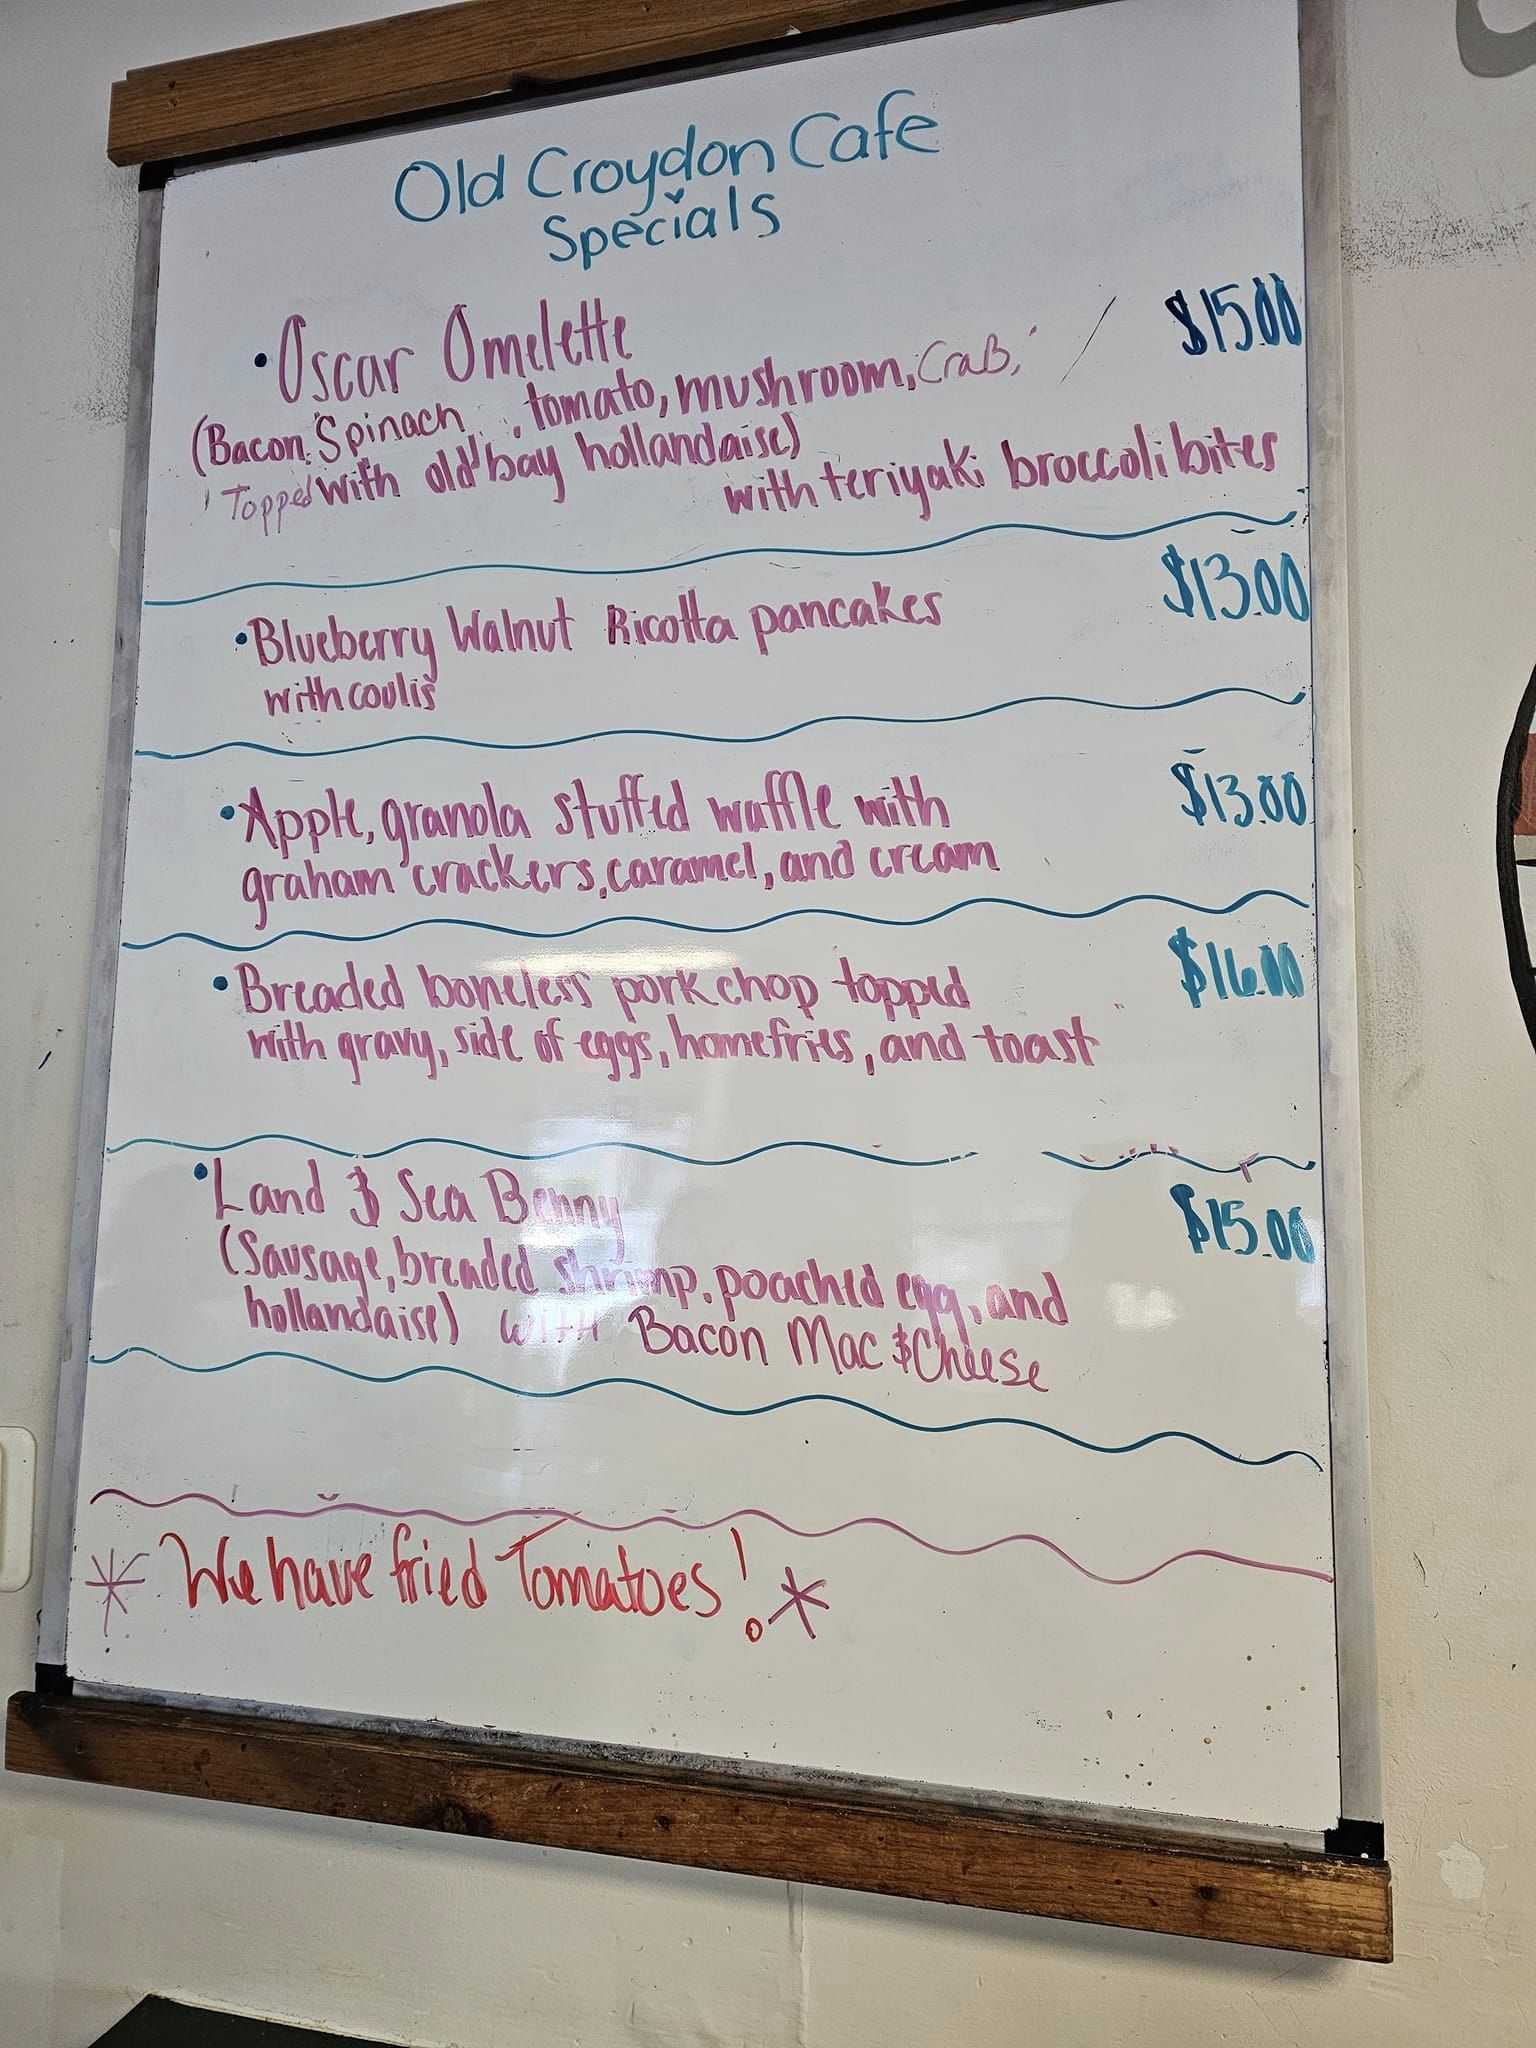 Old Croydon Cafe
Specials
• Oscar Omelette $15.00
(Bacon, Spinach, tomato, mushroom, CraB,
Topped with old bay hollandaise)
with teriyaki broccoli bites
• Blueberry Walnut Ricotta pancakes $13.00
with coulis
• Apple, granola stuffed waffle with $13.00
graham crackers, caramel, and cream
• Breaded boneless pork chop topped $16.00
with gravy, side of eggs, homefries, and toast
• Land & Sea Benny $15.00
(Sausage, breaded shrimp, poached egg, and
hollandaise) with Bacon Mac & Cheese
* We have fried Tomatoes! *